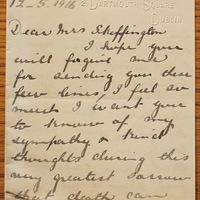 12-5.1916
2 DARTMOUTH SQUARE
DUBLIN
Dear Mrs Skeffington
I hope you
will forgive me
for sending you these
few lines, I feel so
much I want you
to know of my
sympathy & kind
thoughts during this
very greatest sorrow
that death can